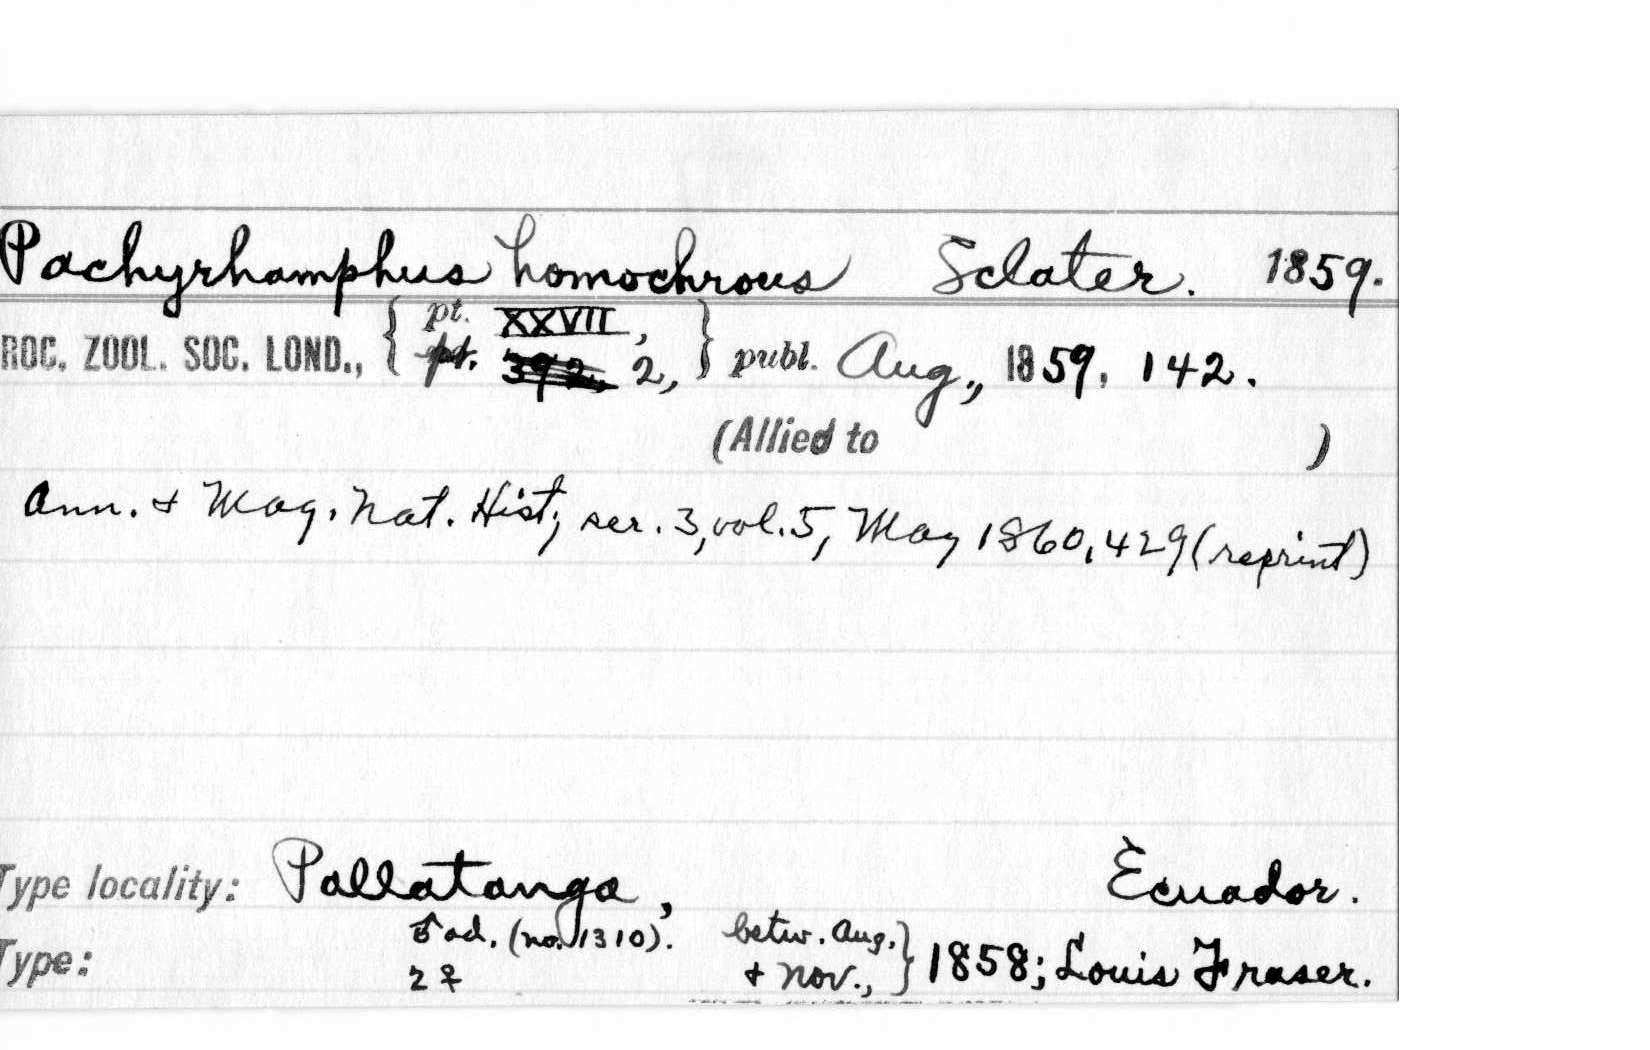 Pachyrhamphus homochrous Sclater. 1859.
ROC. ZOOL. SOC. LOND., { pt. XXVII, pt. 392, 2, } publ. Aug., 1859, 142.
(Allied to )
Ann. & Mag. Nat. Hist., ser. 3, vol. 5, May 1860, 429 (reprint)
Type locality: Pallatanga, Ecuador.
Type: ♂ ad. (no. 1310). 2 ♀ betw. Aug. & Nov., } 1858; Louis Fraser.